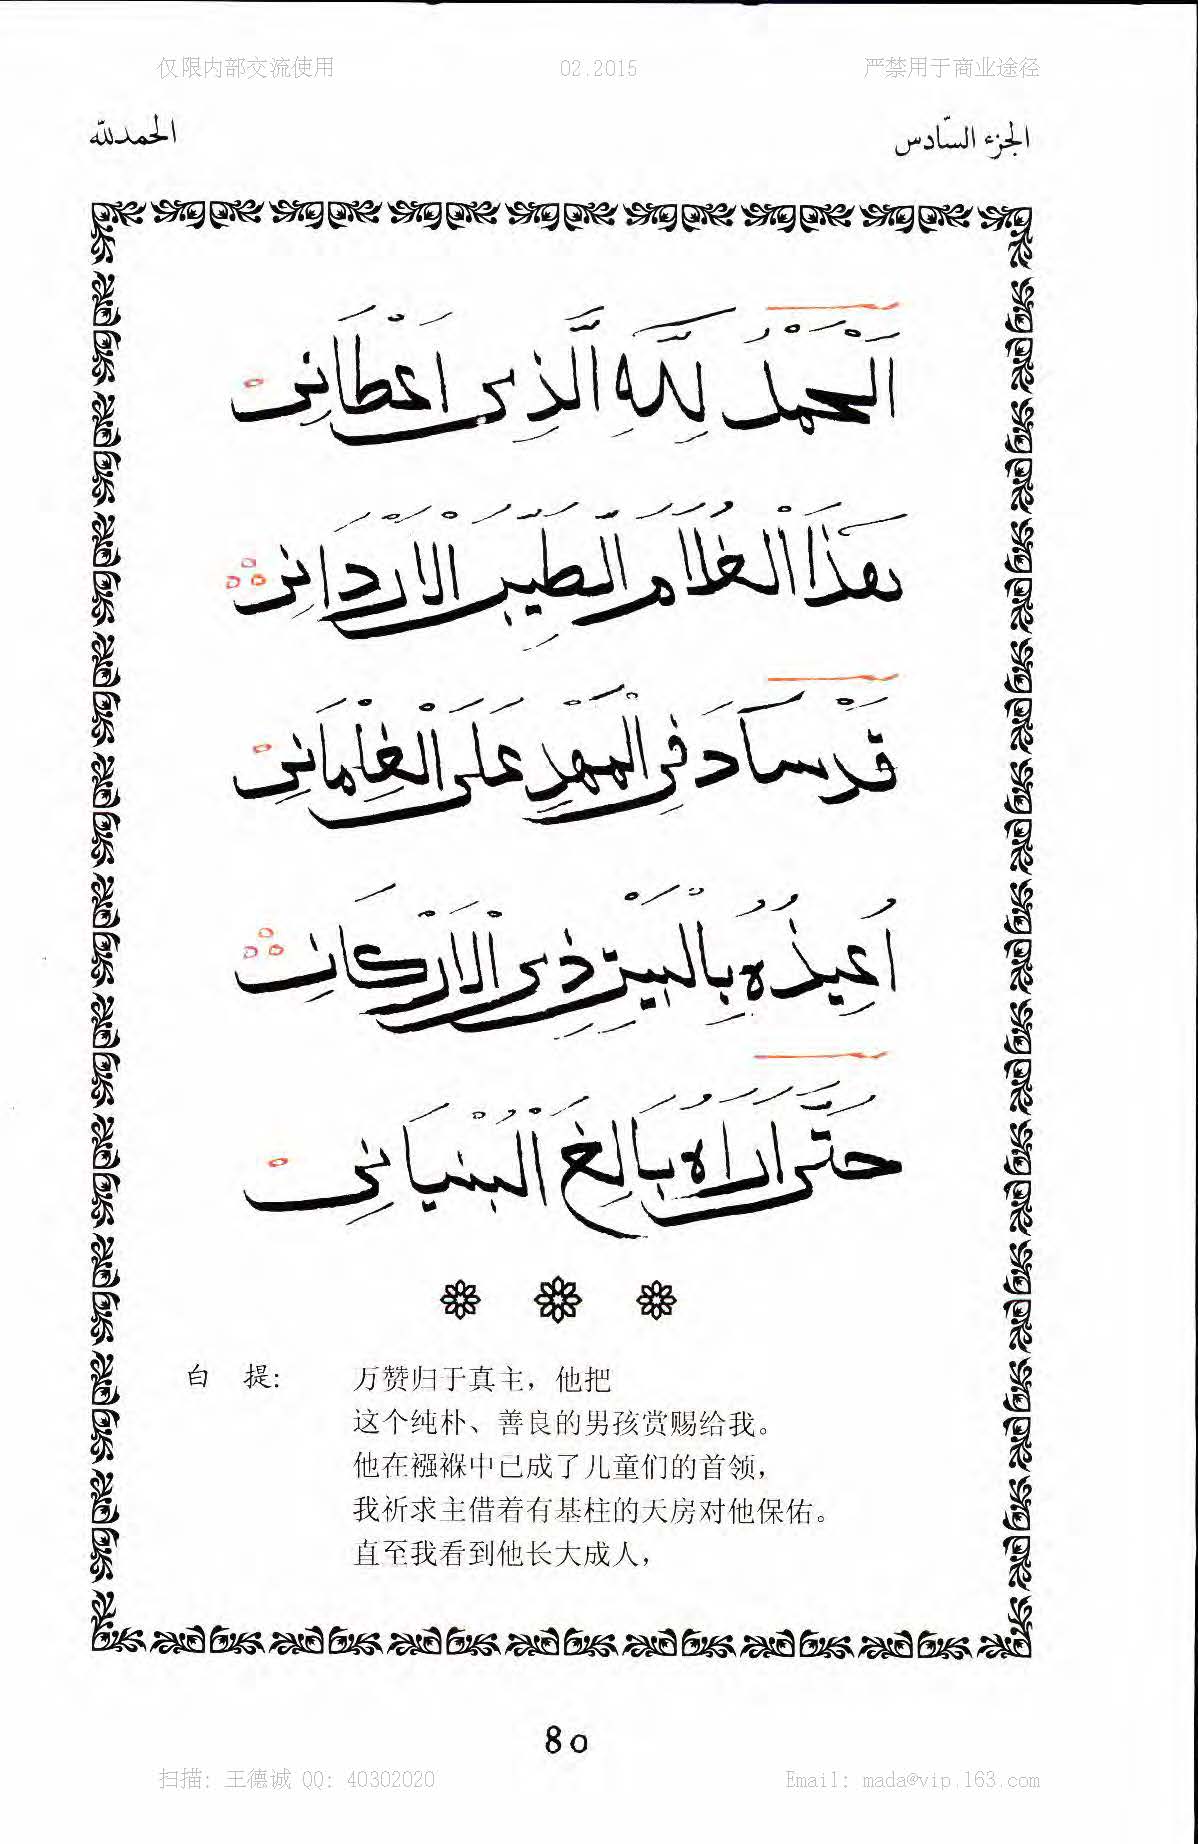 仅限内部交流使用 02.2015 严禁用于商业途径
الجزء السّادس الحمدلله
اَلْحَمْدُ لِلَّهِ الَّذِى اَعْطَانِى
هَذَا الْغُلَامَ الطَّيِّبَ الْاَرْدَانِ
قَدْ سَادَ فِى الْمَهْدِ عَلَى الْغِلْمَانِى
اُعِيذُهُ بِالْبَيْتِ ذِى الْاَرْكَانِ
حَتَّى اَرَاهُ بَالِغَ الْبُنْيَانِى
白 提: 万赞归于真主，他把
这个纯朴、善良的男孩赏赐给我。
他在襁褓中已成了儿童们的首领，
我祈求主借着有基柱的天房对他保佑。
直至我看到他长大成人，
80
扫描: 王德诚 QQ: 40302020 Email: mada@vip.163.com